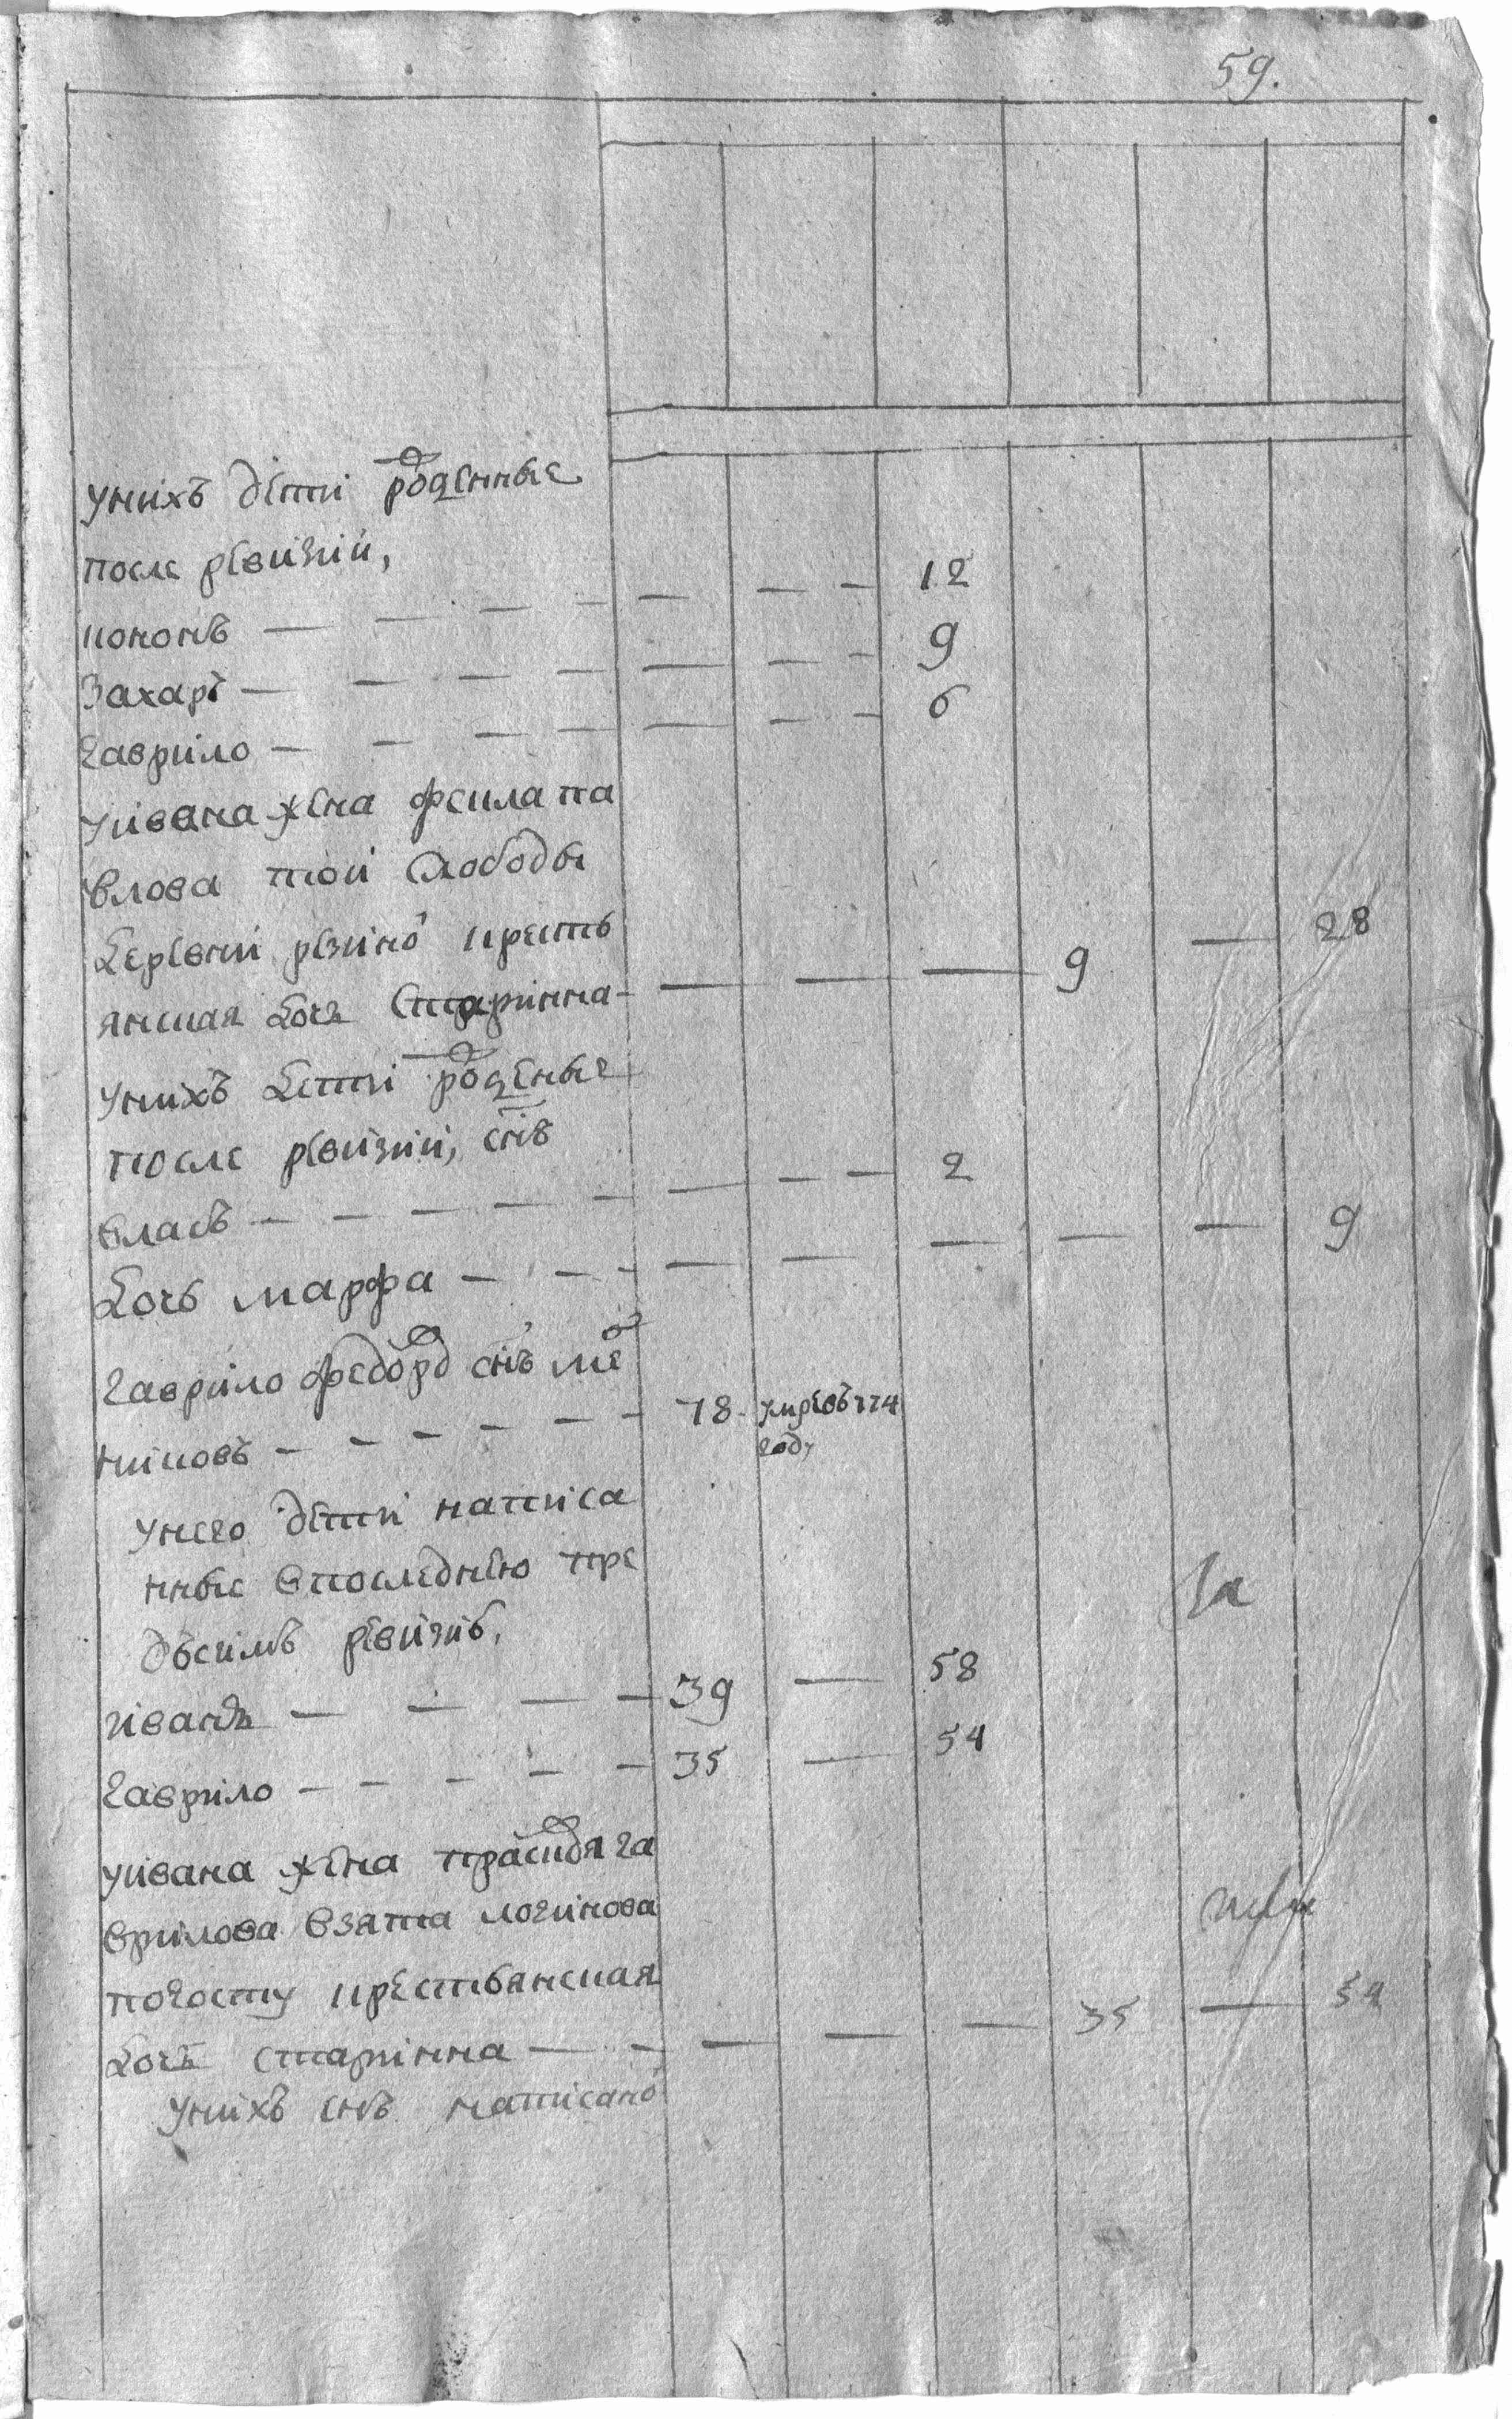 59.
у нихъ дети рожденные
после ревизии,
кононъ — — — — — — — 12
Захаръ — — — — — — — 9
гаврило — — — — — — — 6
у ивана жена фекла па
влова той слободы
деревни крестъ
янская дочь старинна — — — 9 — 28
у нихъ дети рожденые
после ревизии, снъ
власъ — — — — — — — 2
дочь марфа — — — — — — — — 9
гаврило федоров снъ ме
никовъ — — — — — 78 умре въ 774
году
у него дети написа
нные в последнюю пре
дъ симъ ревизию,
иванъ — — — — 39 — 58
гаврило — — — — — 35 — 54
у ивана жена прасковя га
врилова взята логинова
погосту крестьянская
дочь старинна — — — — — 35 — 54
у нихъ снъ написано